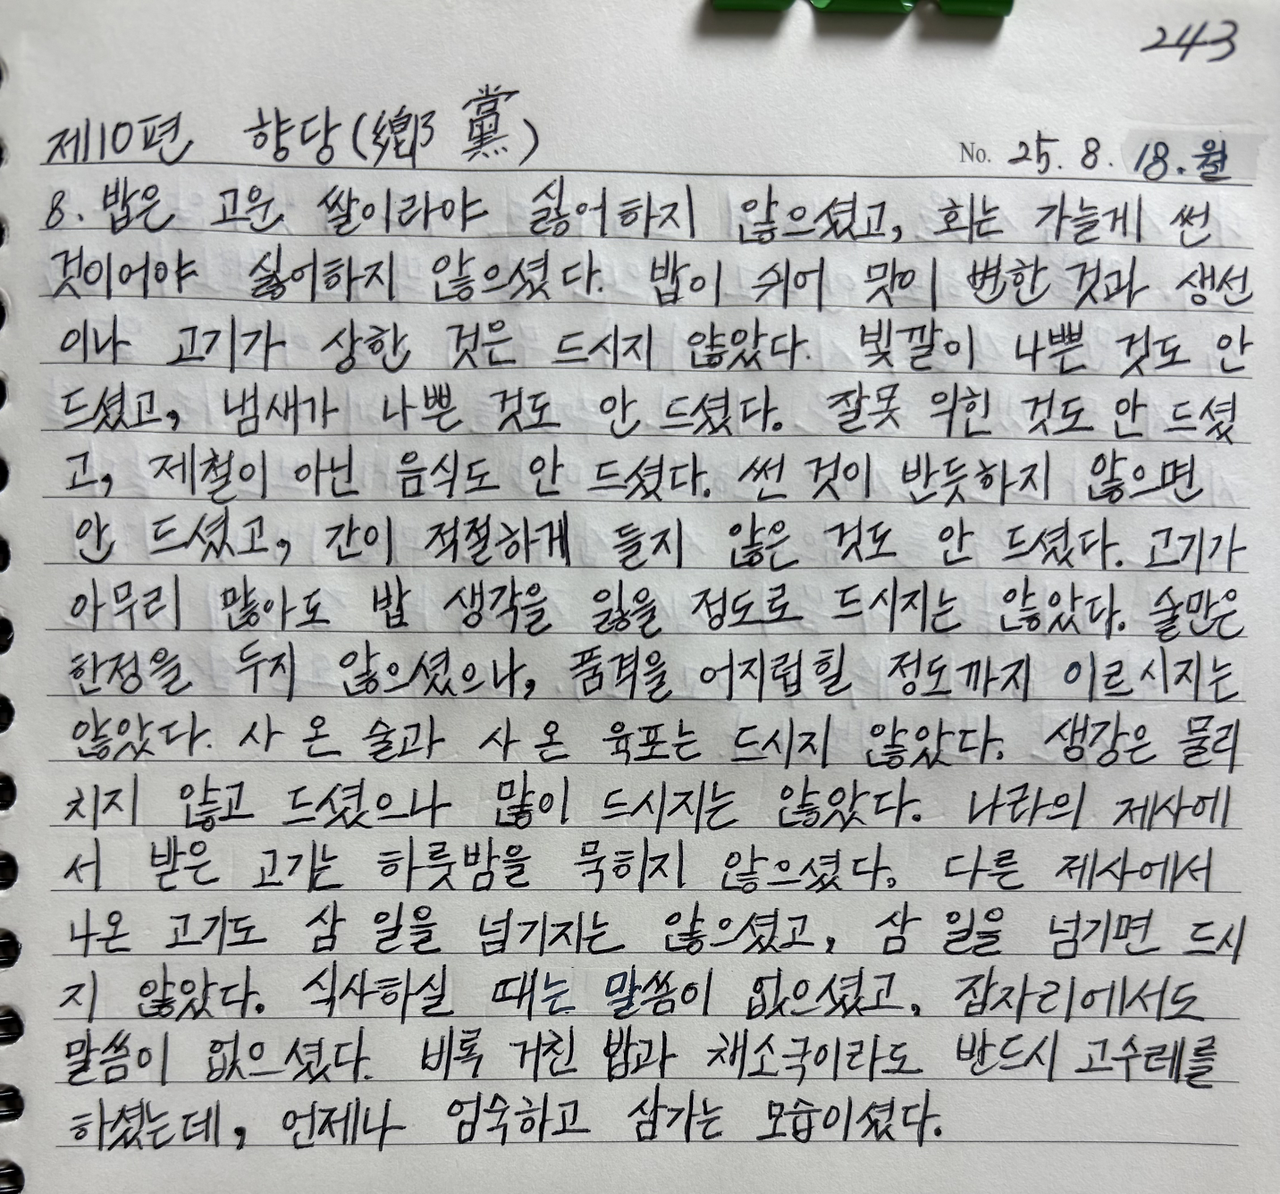 243
제10편 향당(鄕黨)
No. 25. 8. 18. 월
8. 밥은 고운 쌀이라야 싫어하지 않으셨고, 회는 가늘게 썬
것이어야 싫어하지 않으셨다. 밥이 쉬어 맛이 변한 것과 생선
이나 고기가 상한 것은 드시지 않았다. 빛깔이 나쁜 것도 안
드셨고, 냄새가 나쁜 것도 안 드셨다. 잘못 익힌 것도 안 드셨
고, 제철이 아닌 음식도 안 드셨다. 썬 것이 반듯하지 않으면
안 드셨고, 간이 적절하게 들지 않은 것도 안 드셨다. 고기가
아무리 많아도 밥 생각을 잃을 정도로 드시지는 않았다. 술만은
한정을 두지 않으셨으나, 품격을 어지럽힐 정도까지 이르시지는
않았다. 사 온 술과 사 온 육포는 드시지 않았다. 생강은 물리
치지 않고 드셨으나 많이 드시지는 않았다. 나라의 제사에
서 받은 고기는 하룻밤을 묵히지 않으셨다. 다른 제사에서
나온 고기도 삼 일을 넘기지는 않으셨고, 삼 일을 넘기면 드시
지 않았다. 식사하실 때는 말씀이 없으셨고, 잠자리에서도
말씀이 없으셨다. 비록 거친 밥과 채소국이라도 반드시 고수레를
하셨는데, 언제나 엄숙하고 삼가는 모습이셨다.